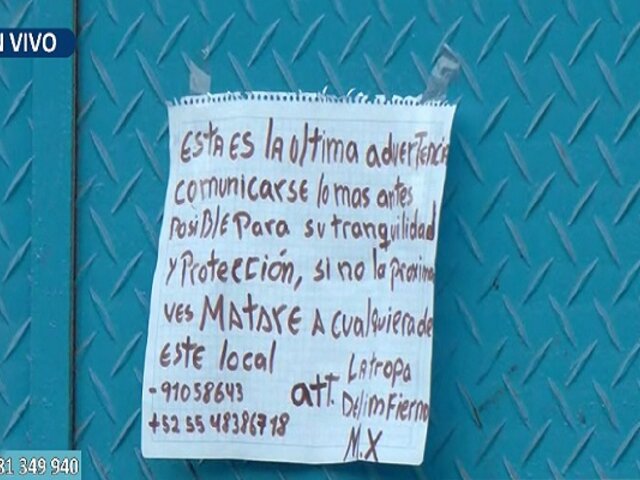 N VIVO
ESTA ES LA ULtima advERTENCia
comunicarse lo mas antes
POSiBLE Para su tranquilidad
Y PROTECCIÓN, si no la proxima
VES MATARE A cualquiera de
ESTE local
-91058643
+52 55 48386718
att. LA tropa
Del imFierno
M.X
81 349 940